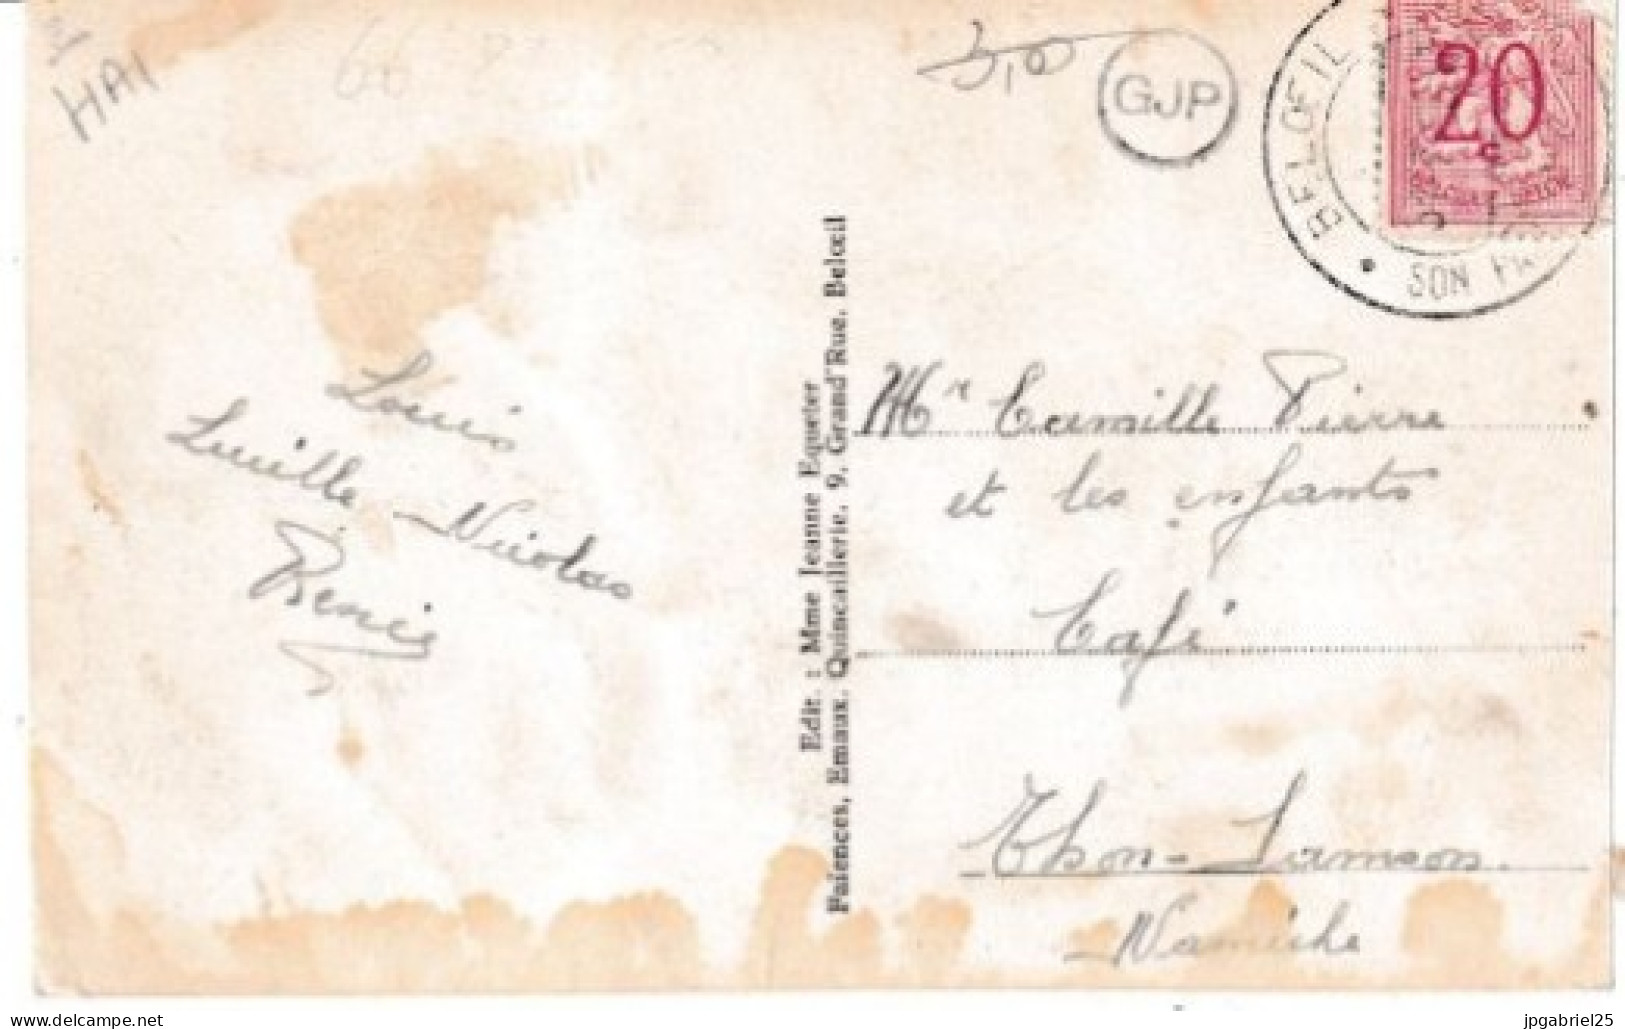 HAI
66
3,0
GJP
BELOEIL
SON
20
c
Louis
Lucille - Nicolas
Renée
Edit. : Mme Jeanne Equeter
Faïences, Emaux, Quincaillerie, 9, Grand'Rue, Belœil
Mr Camille Pierre
et les enfants
Café
Thon - Samson.
Namêche
delcampe.net
jpgabriel25